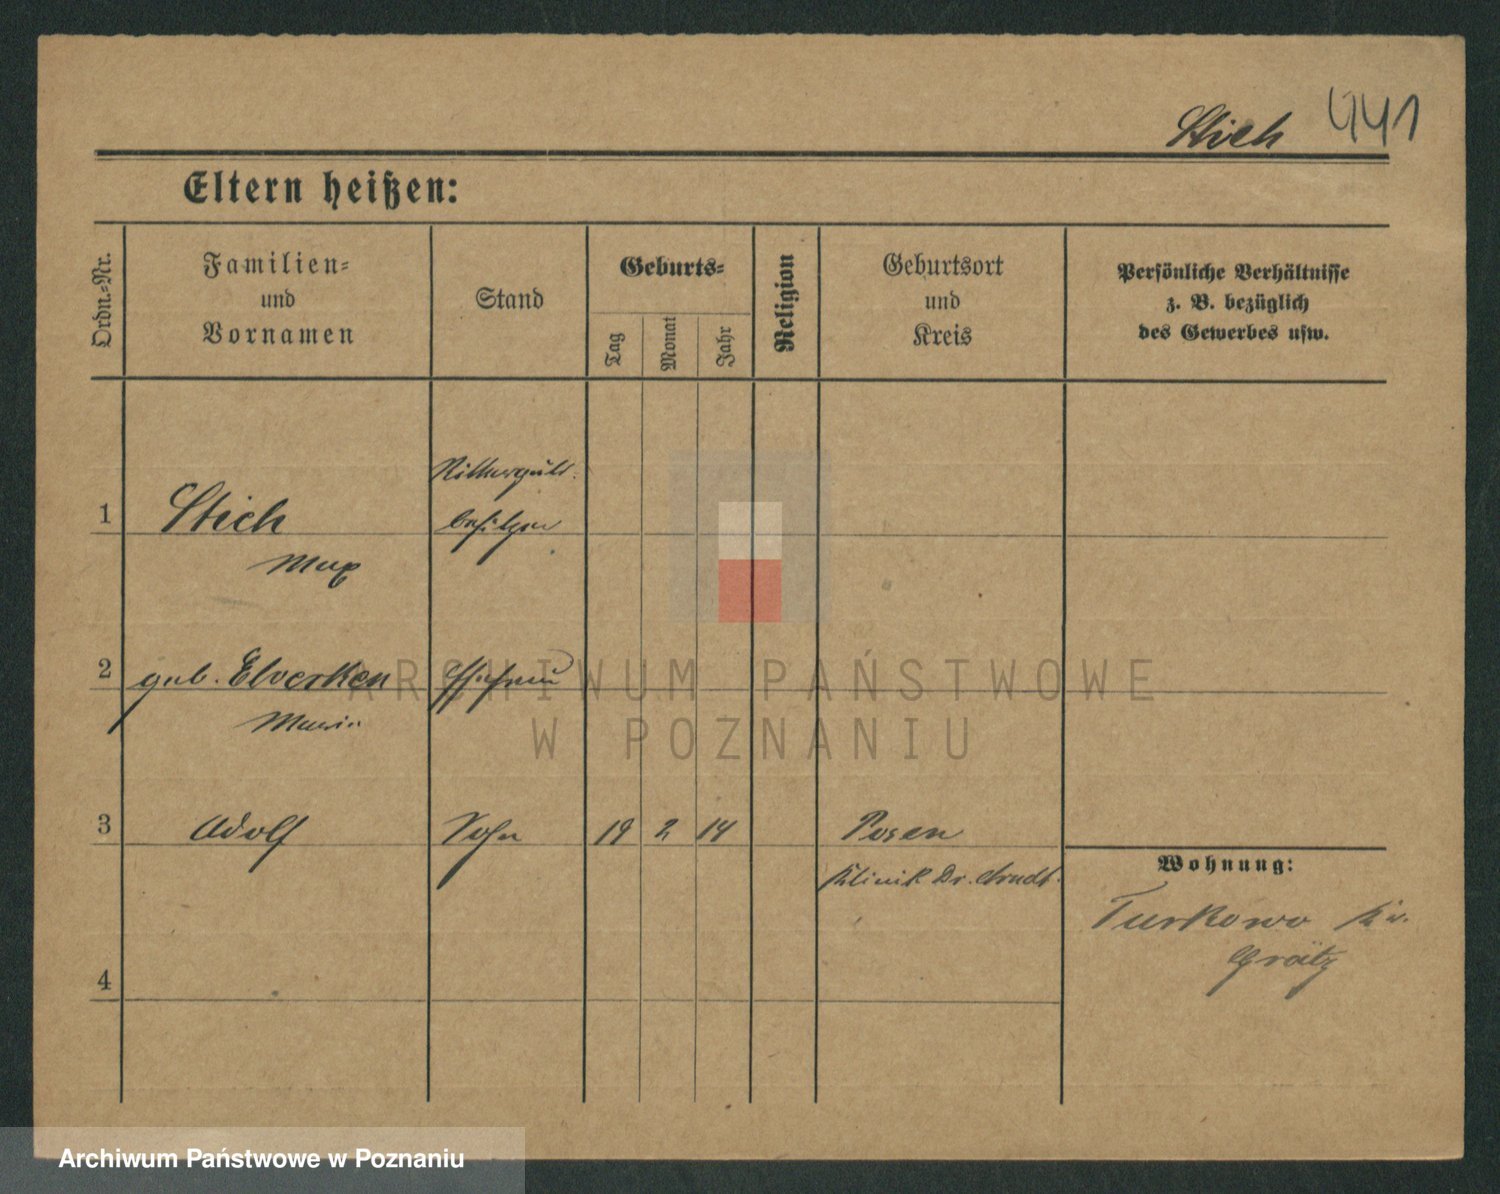 Stich 441
Eltern heißen:
Ordn.-Nr.
Familien-
und
Vornamen
Stand
Geburts-
Tag
Monat
Jahr
Religion
Geburtsort
und
Kreis
Persönliche Verhältnisse
z. B. bezüglich
des Gewerbes usw.
1
Stich
Max
Ritterguts-
besitzer
2
geb. Elverken
Maria
Ehefrau
3
Adolf
Sohn
19 2 14
Posen
Klinik Dr. Arndt.
Wohnung:
Turkowo Kr.
Grätz
4
ARCHIWUM PAŃSTWOWE
W POZNANIU
Archiwum Państwowe w Poznaniu